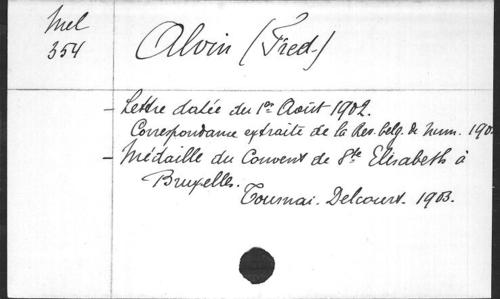 Mel
354
Alvin (Fred.)
- Lettre datée du 1er Août 1902.
Correspondance extraite de la Rev. belg. de num. 190
- Médaille du Couvent de Ste Elisabeth à
Bruxelles.
Tournai. Delcourt. 1903.